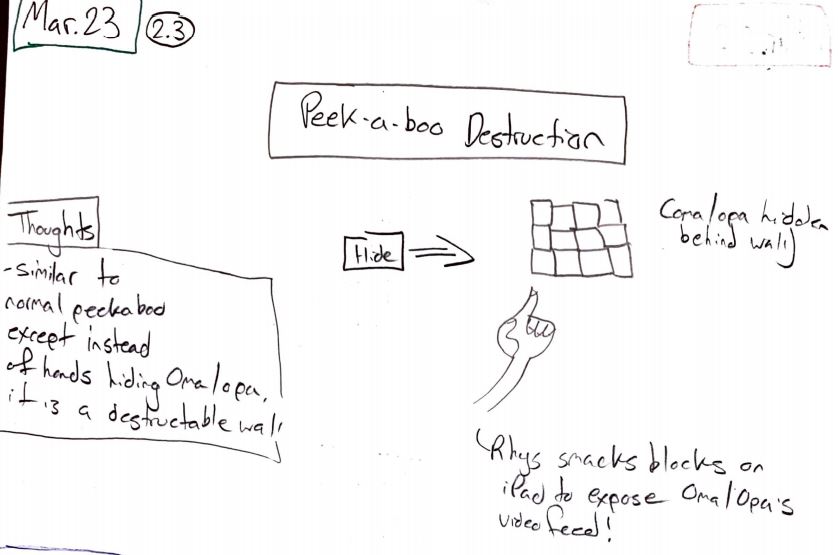 Mar. 23
2.3
Peek-a-boo Destruction
Thoughts
- similar to
normal peekaboo
except instead
of hands hiding Oma/opa,
it is a destructable wall
Hide
Oma/opa hidden
behind wall
Rhys smacks blocks on
iPad to expose Oma/Opa's
video feed!